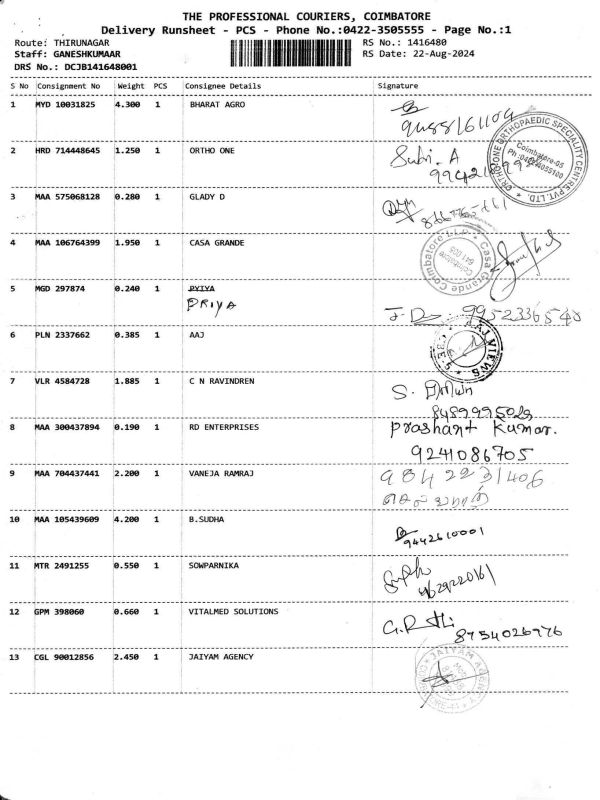 THE PROFESSIONAL COURIERS, COIMBATORE
Delivery Runsheet - PCS - Phone No.:0422-3505555 - Page No.:1
Route: THIRUNAGAR RS No.: 1416480
Staff: GANESHKUMAAR RS Date: 22-Aug-2024
DRS No.: DCJB141648001
S No Consignment No Weight PCS Consignee Details Signature
1 MYD 10031825 4.300 1 BHARAT AGRO
2 HRD 714448645 1.250 1 ORTHO ONE Subi. A
ORTHOONE ORTHOPAEDIC SPECIALITY CENTRE PVT. LTD.
Coimbatore-05
3 MAA 575068128 0.280 1 GLADY D
4 MAA 106764399 1.950 1 CASA GRANDE
Casa Grande Coimbatore L.L.P.
Coimbatore
641 005
5 MGD 297874 0.240 1 PYIYA
PRIYA
9952336540
6 PLN 2337662 0.385 1 AAJ
VIEWS
CBE-5
7 VLR 4584728 1.885 1 C N RAVINDREN
8489995029
8 MAA 300437894 0.190 1 RD ENTERPRISES Prashant Kumar.
9241086705
9 MAA 704437441 2.200 1 VANEJA RAMRAJ 9842231406
10 MAA 105439609 4.200 1 B.SUDHA
9442610001
11 MTR 2491255 0.550 1 SOWPARNIKA
12 GPM 398060 0.660 1 VITALMED SOLUTIONS
8754026976
13 CGL 90012856 2.450 1 JAIYAM AGENCY
JAIYAM AGENCY